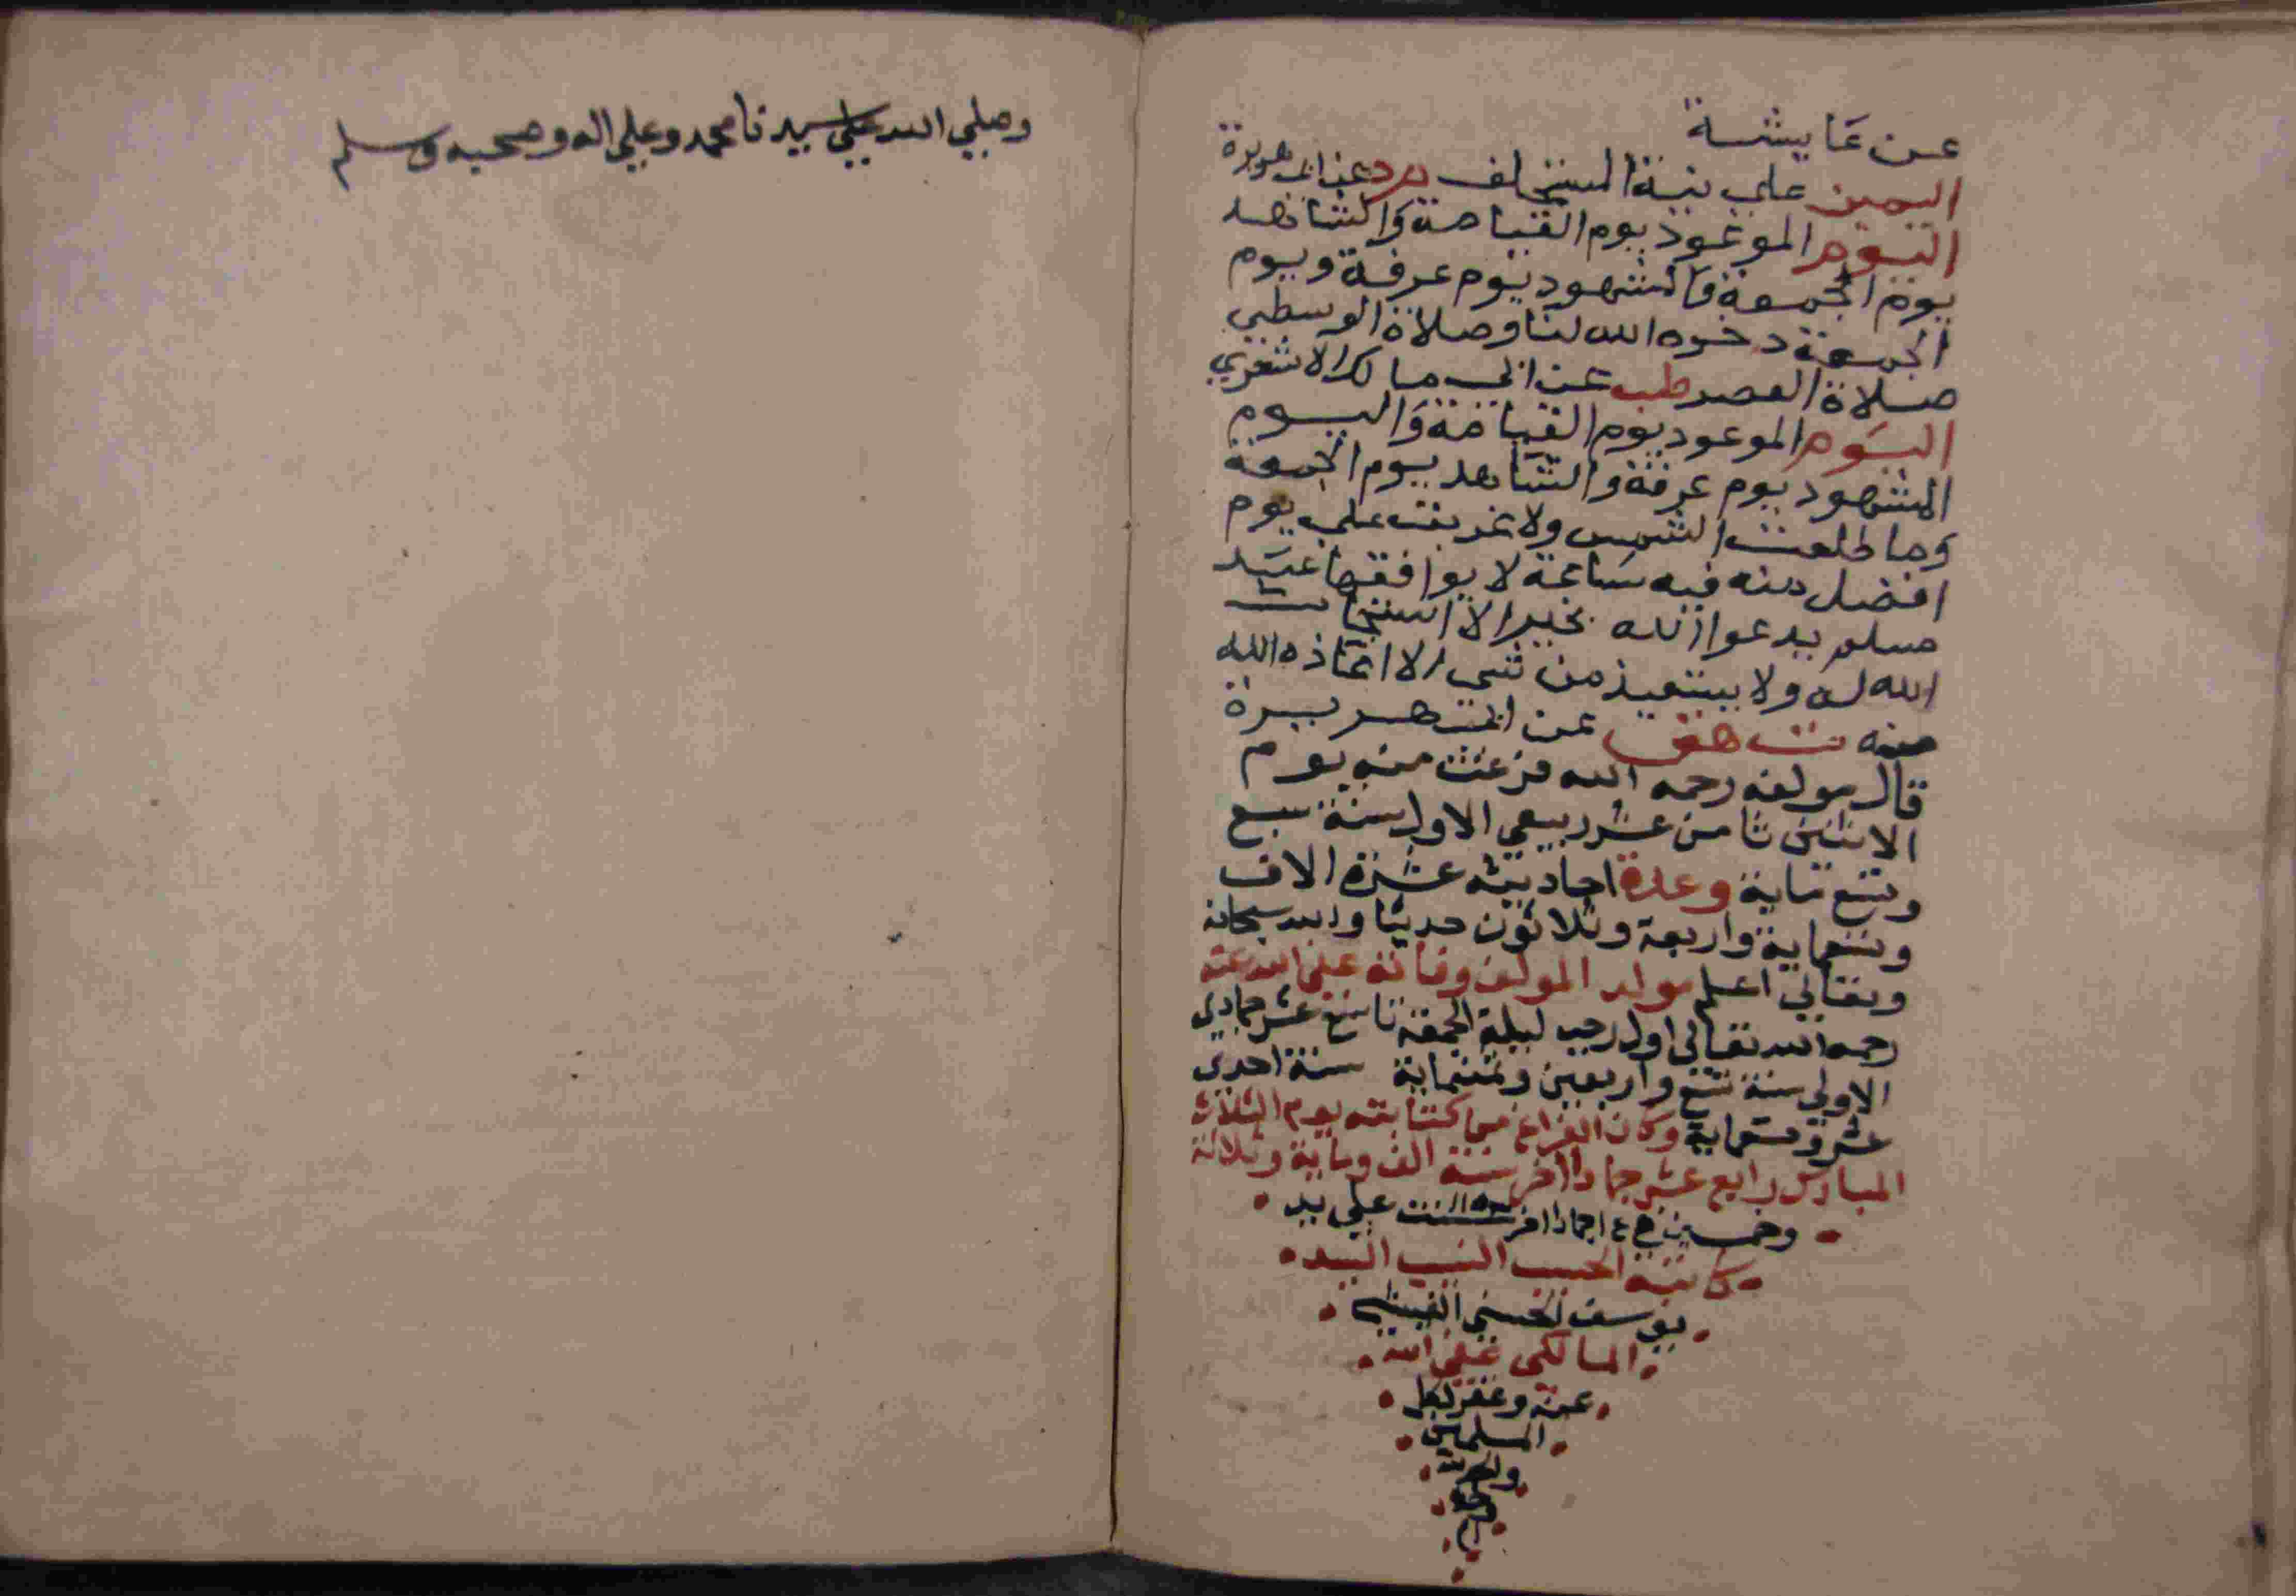 عن عايشة
اليمين علي نية المستحلف م د عن ابي هريرة
اليوم الموعود يوم القيامة والشاهد
يوم الجمعة والمشهود يوم عرفة ويوم
الجمعة دخره الله لنا وصلاة الوسطي
صلاة العصر طب عن ابي مالك الاشعري
اليوم الموعود يوم القيامة واليوم
المشهود يوم عرفة والشاهد يوم الجمعة
وما طلعت الشمس ولا غربت علي يوم
افضل منه فيه ساعة لا يوافقها عبد
مسلم يدعوا الله بخير الا استجاب
الله له ولا يستعيذ من شي الا اعاذه الله
منه ت هق عن ابي هريرة
قال مولفه رحمه الله فرغت منه يوم
الاثنين ثامن عشر ربيع الاول سنة سبع
وتسعماية وعدة احاديثه عشرة الاف
وتسعماية واربعة وثلاثون حديثا والله سبحانه
وتعالي اعلم مولد المولف وفاته عفي الله عنه
رحمه الله تعالي اول رجب ليلة الجمعة تاسع عشر جمادي
الاولي سنة تسع واربعين وثمنماية سنة احدي
عشر وتسعماية وكان الفراغ من كتابته يوم الثلاث
المبارك رابع عشر جماد اخر سنة الف وماية وثلاثة
وخمسين في جماد اخر سنة علي يد
كاتبه الحسيب النسيب السيد
يوسف الحسني
المالكي عفي الله
عنه وغفر لكل
المسلمين
وصلي الله علي سيدنا محمد وعلي اله وصحبه وسلم